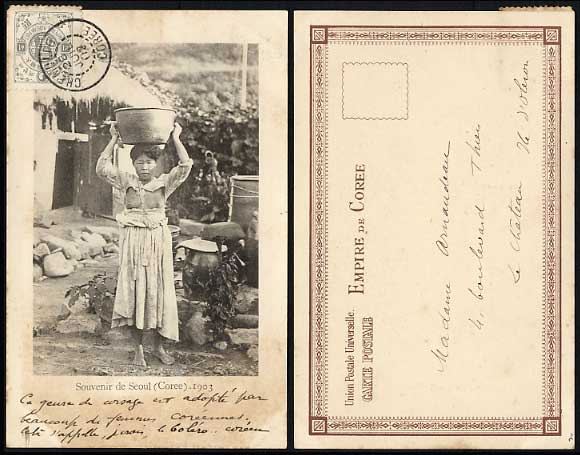 CHEMULPO
COREE
Souvenir de Seoul (Corée).-1903
Ce genre de corsage est adopté par
beaucoup de femmes coréennes.
s'appelle, je crois, le boléro coréen
Union Postale Universelle.
EMPIRE DE COREE
CARTE POSTALE
Madame Arnaudeau
4, boulevard Thiers
Le Château Ile d'Oleron